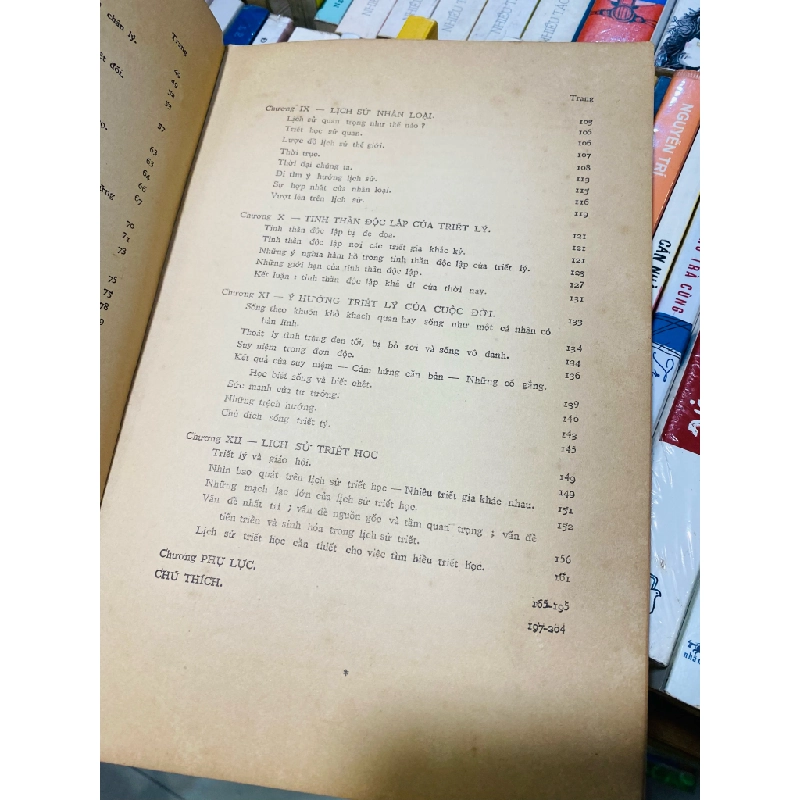 chân lý.
Trang
Trang
Chương IX — LỊCH SỬ NHÂN LOẠI. 105
Lịch sử quan trọng như thế nào ? 106
Triết học sử quan. 106
Lược đồ lịch sử thế giới. 107
Thời trục. 108
Thời đại chúng ta. 119
Đi tìm ý hướng lịch sử. 115
Sự hợp nhất của nhân loại. 116
Vượt lên trên lịch sử 119
Chương X — TINH THẦN ĐỘC LẬP CỦA TRIẾT LÝ. 121
Tinh thần độc lập bị đe dọa. 121
Tinh thần độc lập nơi các triết gia khắc kỷ. 121
Những ý nghĩa hàm hồ trong tinh thần độc lập của triết lý. 123
Những giới hạn của tinh thần độc lập. 127
Kết luận : tinh thần độc lập khả dĩ của thời nay. 131
Chương XI — Ý HƯỚNG TRIẾT LÝ CỦA CUỘC ĐỜI. 133
Sống theo khuôn khổ khách quan hay sống như một cá nhân có
bản lĩnh. 134
Thoát ly tình trạng đen tối, bị bỏ rơi và sống vô danh. 134
Suy niệm trong đơn độc. 136
Kết quả của suy niệm — Cảm hứng căn bản — Những cố gắng.
Học biết sống và biết chết. 138
Sức mạnh của tư tưởng. 140
Những trệch hướng. 143
Chủ đích sống triết lý. 145
Chương XII — LỊCH SỬ TRIẾT HỌC
Triết lý và giáo hội. 149
Nhìn bao quát trên lịch sử triết học — Nhiều triết gia khác nhau. 149
Những mạch lạc lớn của lịch sử triết học. 151
Vấn đề nhất trí ; vấn đề nguồn gốc và tầm quan trọng ; vấn đề 152
tiến triển và sinh hóa trong lịch sử triết. 156
Lịch sử triết học cần thiết cho việc tìm hiểu triết học. 161
Chương PHỤ LỤC. 165-195
CHÚ THÍCH. 197-204
*
NGUYÊN TRÍ
CĂN NHÀ
TRÀ CÚNG